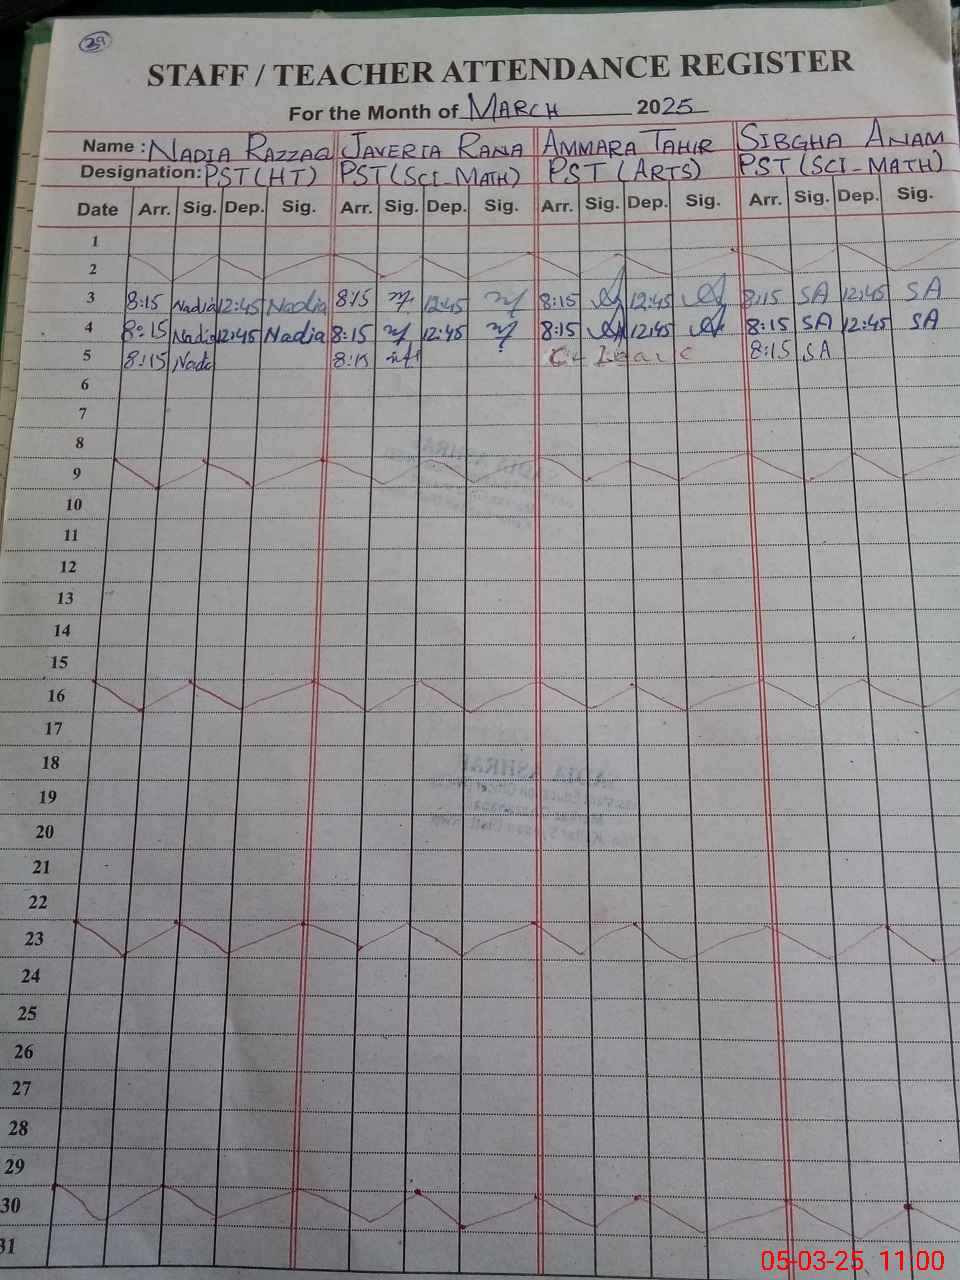 29
STAFF / TEACHER ATTENDANCE REGISTER
For the Month of MARCH 2025
Name : NADIA RAZZAQ JAVERIA RANA AMMARA TAHIR SIBGHA ANAM
Designation: PST(HT) PST(SCI-MATH) PST (ARTS) PST(SCI-MATH)
Date Arr. Sig. Dep. Sig. Arr. Sig. Dep. Sig. Arr. Sig. Dep. Sig. Arr. Sig. Dep. Sig.
1
2
3 8:15 Nadia 12:45 Nadia 8:15 12:45 8:15 12:45 8:15 SA 12:45 SA
4 8:15 Nadia 12:45 Nadia 8:15 12:45 8:15 12:45 8:15 SA 12:45 SA
5 8:15 8:15 Leave 8:15 SA
6
7
8
9
10
11
12
13
14
15
16
17
18
19
20
21
22
23
24
25
26
27
28
29
30
31
05-03-25 11:00